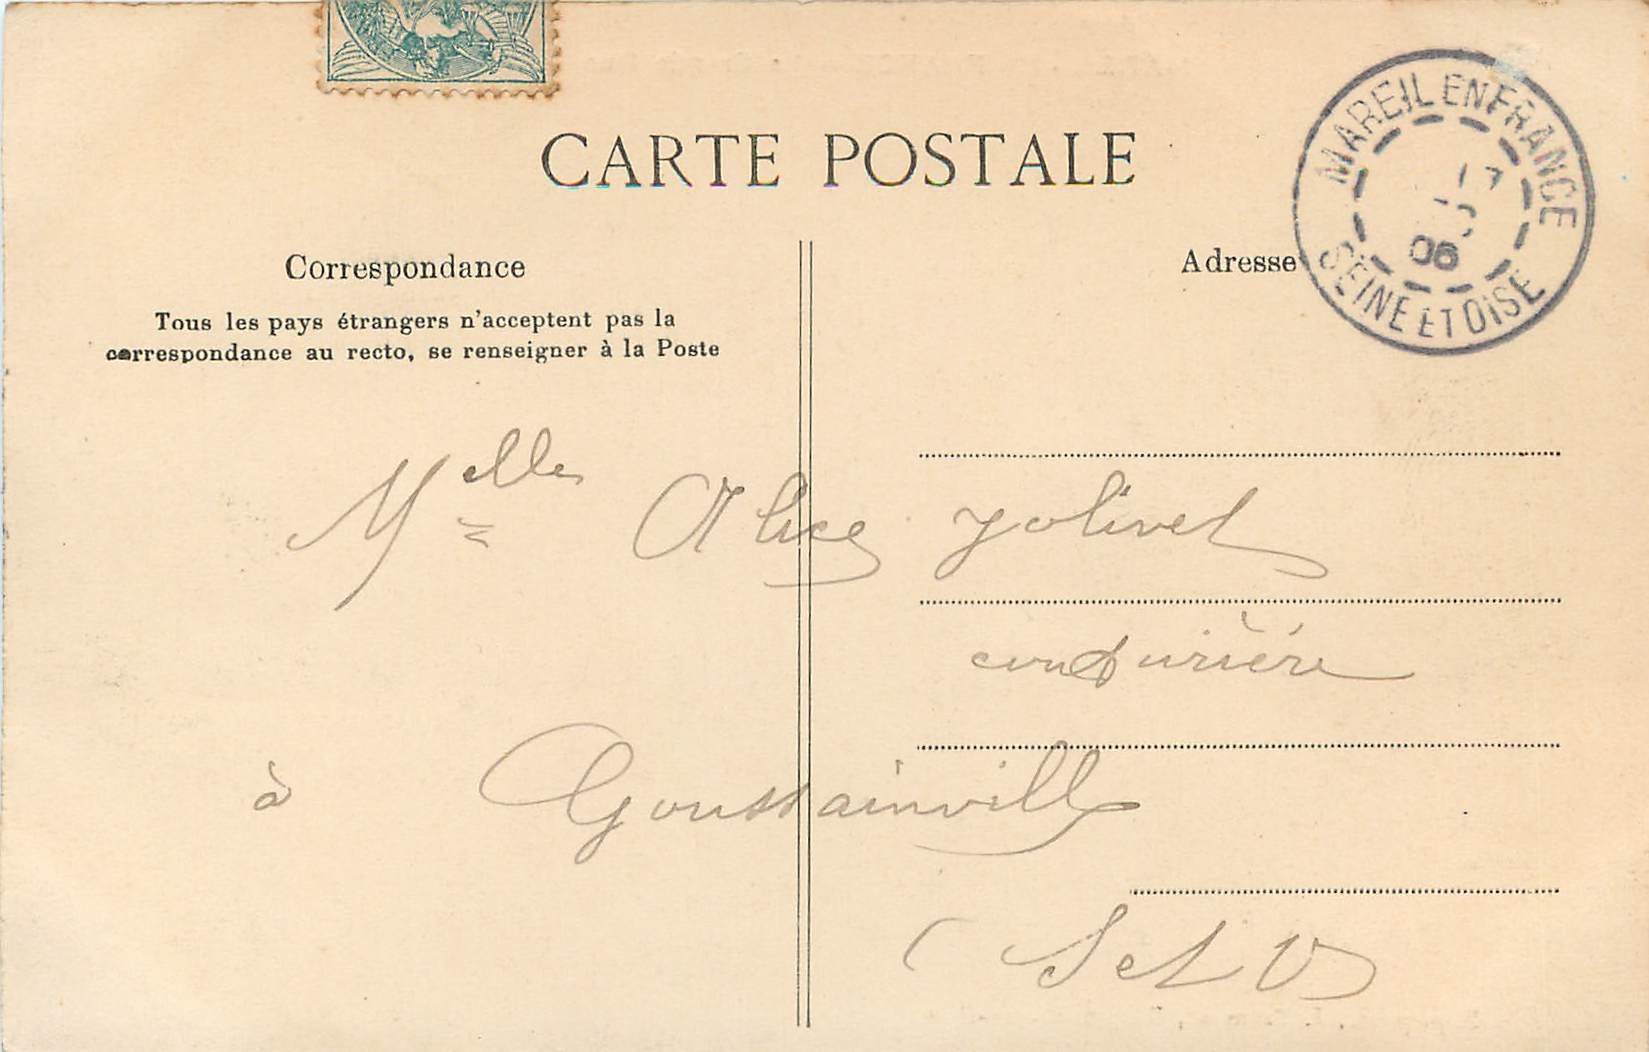 CARTE POSTALE
Correspondance
Tous les pays étrangers n'acceptent pas la
correspondance au recto, se renseigner à la Poste
Adresse
MAREIL EN FRANCE
06
SEINE ET OISE
Melle Alice Jolivet
couturière
à Goussainville
(S et O)